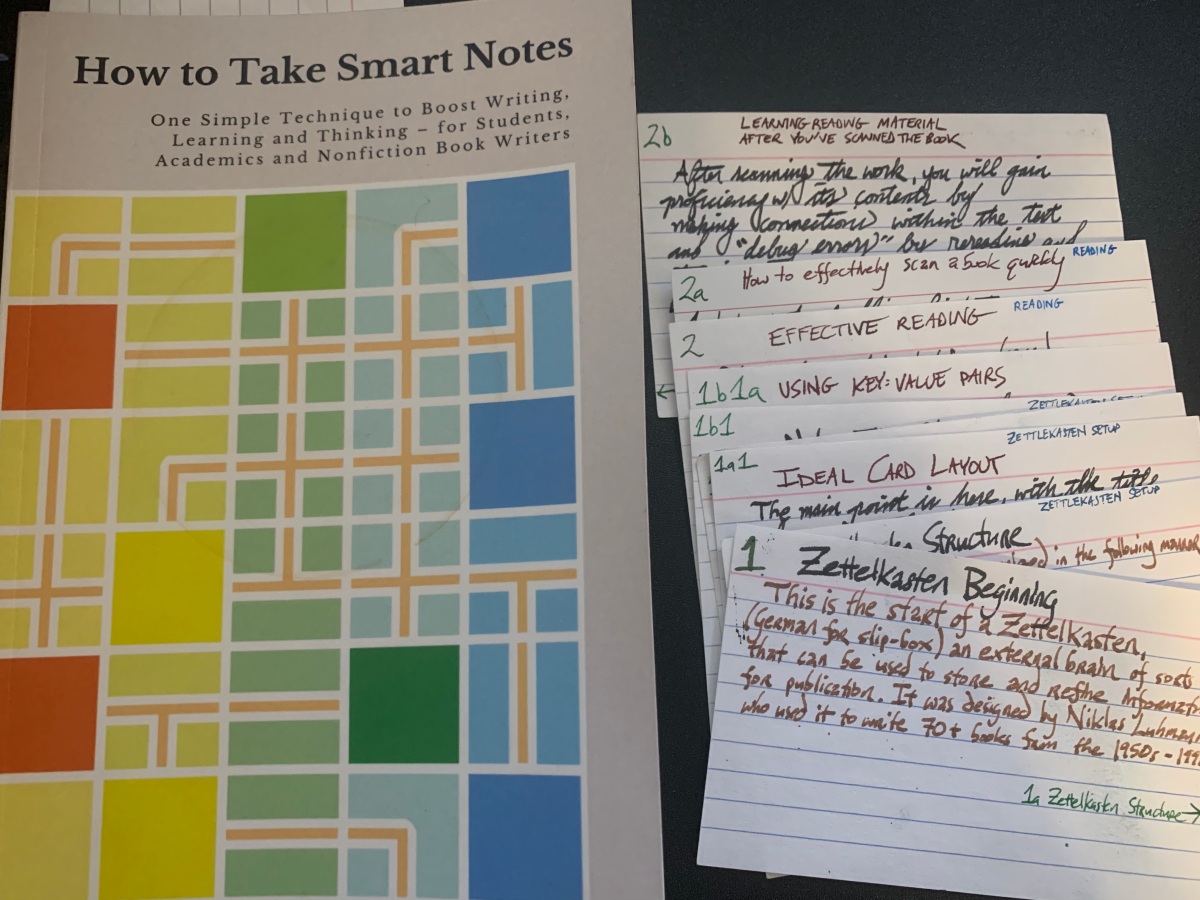 How to Take Smart Notes
One Simple Technique to Boost Writing,
Learning and Thinking – for Students,
Academics and Nonfiction Book Writers
2b
LEARNING READING MATERIAL
AFTER YOU'VE SCANNED THE BOOK
After scanning the work, you will gain
proficiency w/ its contents by
making connections within the text
and "debug errors" by rereading and
2a
How to effectively scan a book quickly
READING
2
EFFECTIVE READING
READING
1b1a
USING KEY:VALUE PAIRS
1b1
ZETTLEKASTEN
1a1
ZETTLEKASTEN SETUP
IDEAL CARD LAYOUT
The main point is here, with the title,
ZETTLEKASTEN SETUP
Structure
in the following manner
1
Zettelkasten Beginning
This is the start of a Zettelkasten,
(German for slip-box) an external brain of sorts
that can be used to store and refine
for publication. It was designed by Niklas
who used it to write 70+ books from the 1950s -
1a Zettelkasten Structure →